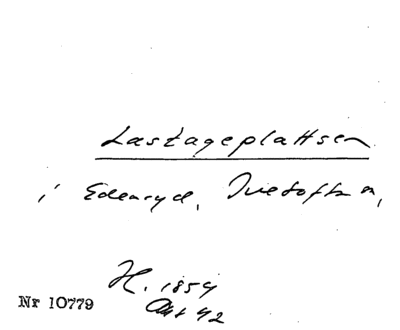 Lastageplattsen
i Edenryd, Ivetofta n,
H. 1854
Akt 42
Nr 10779